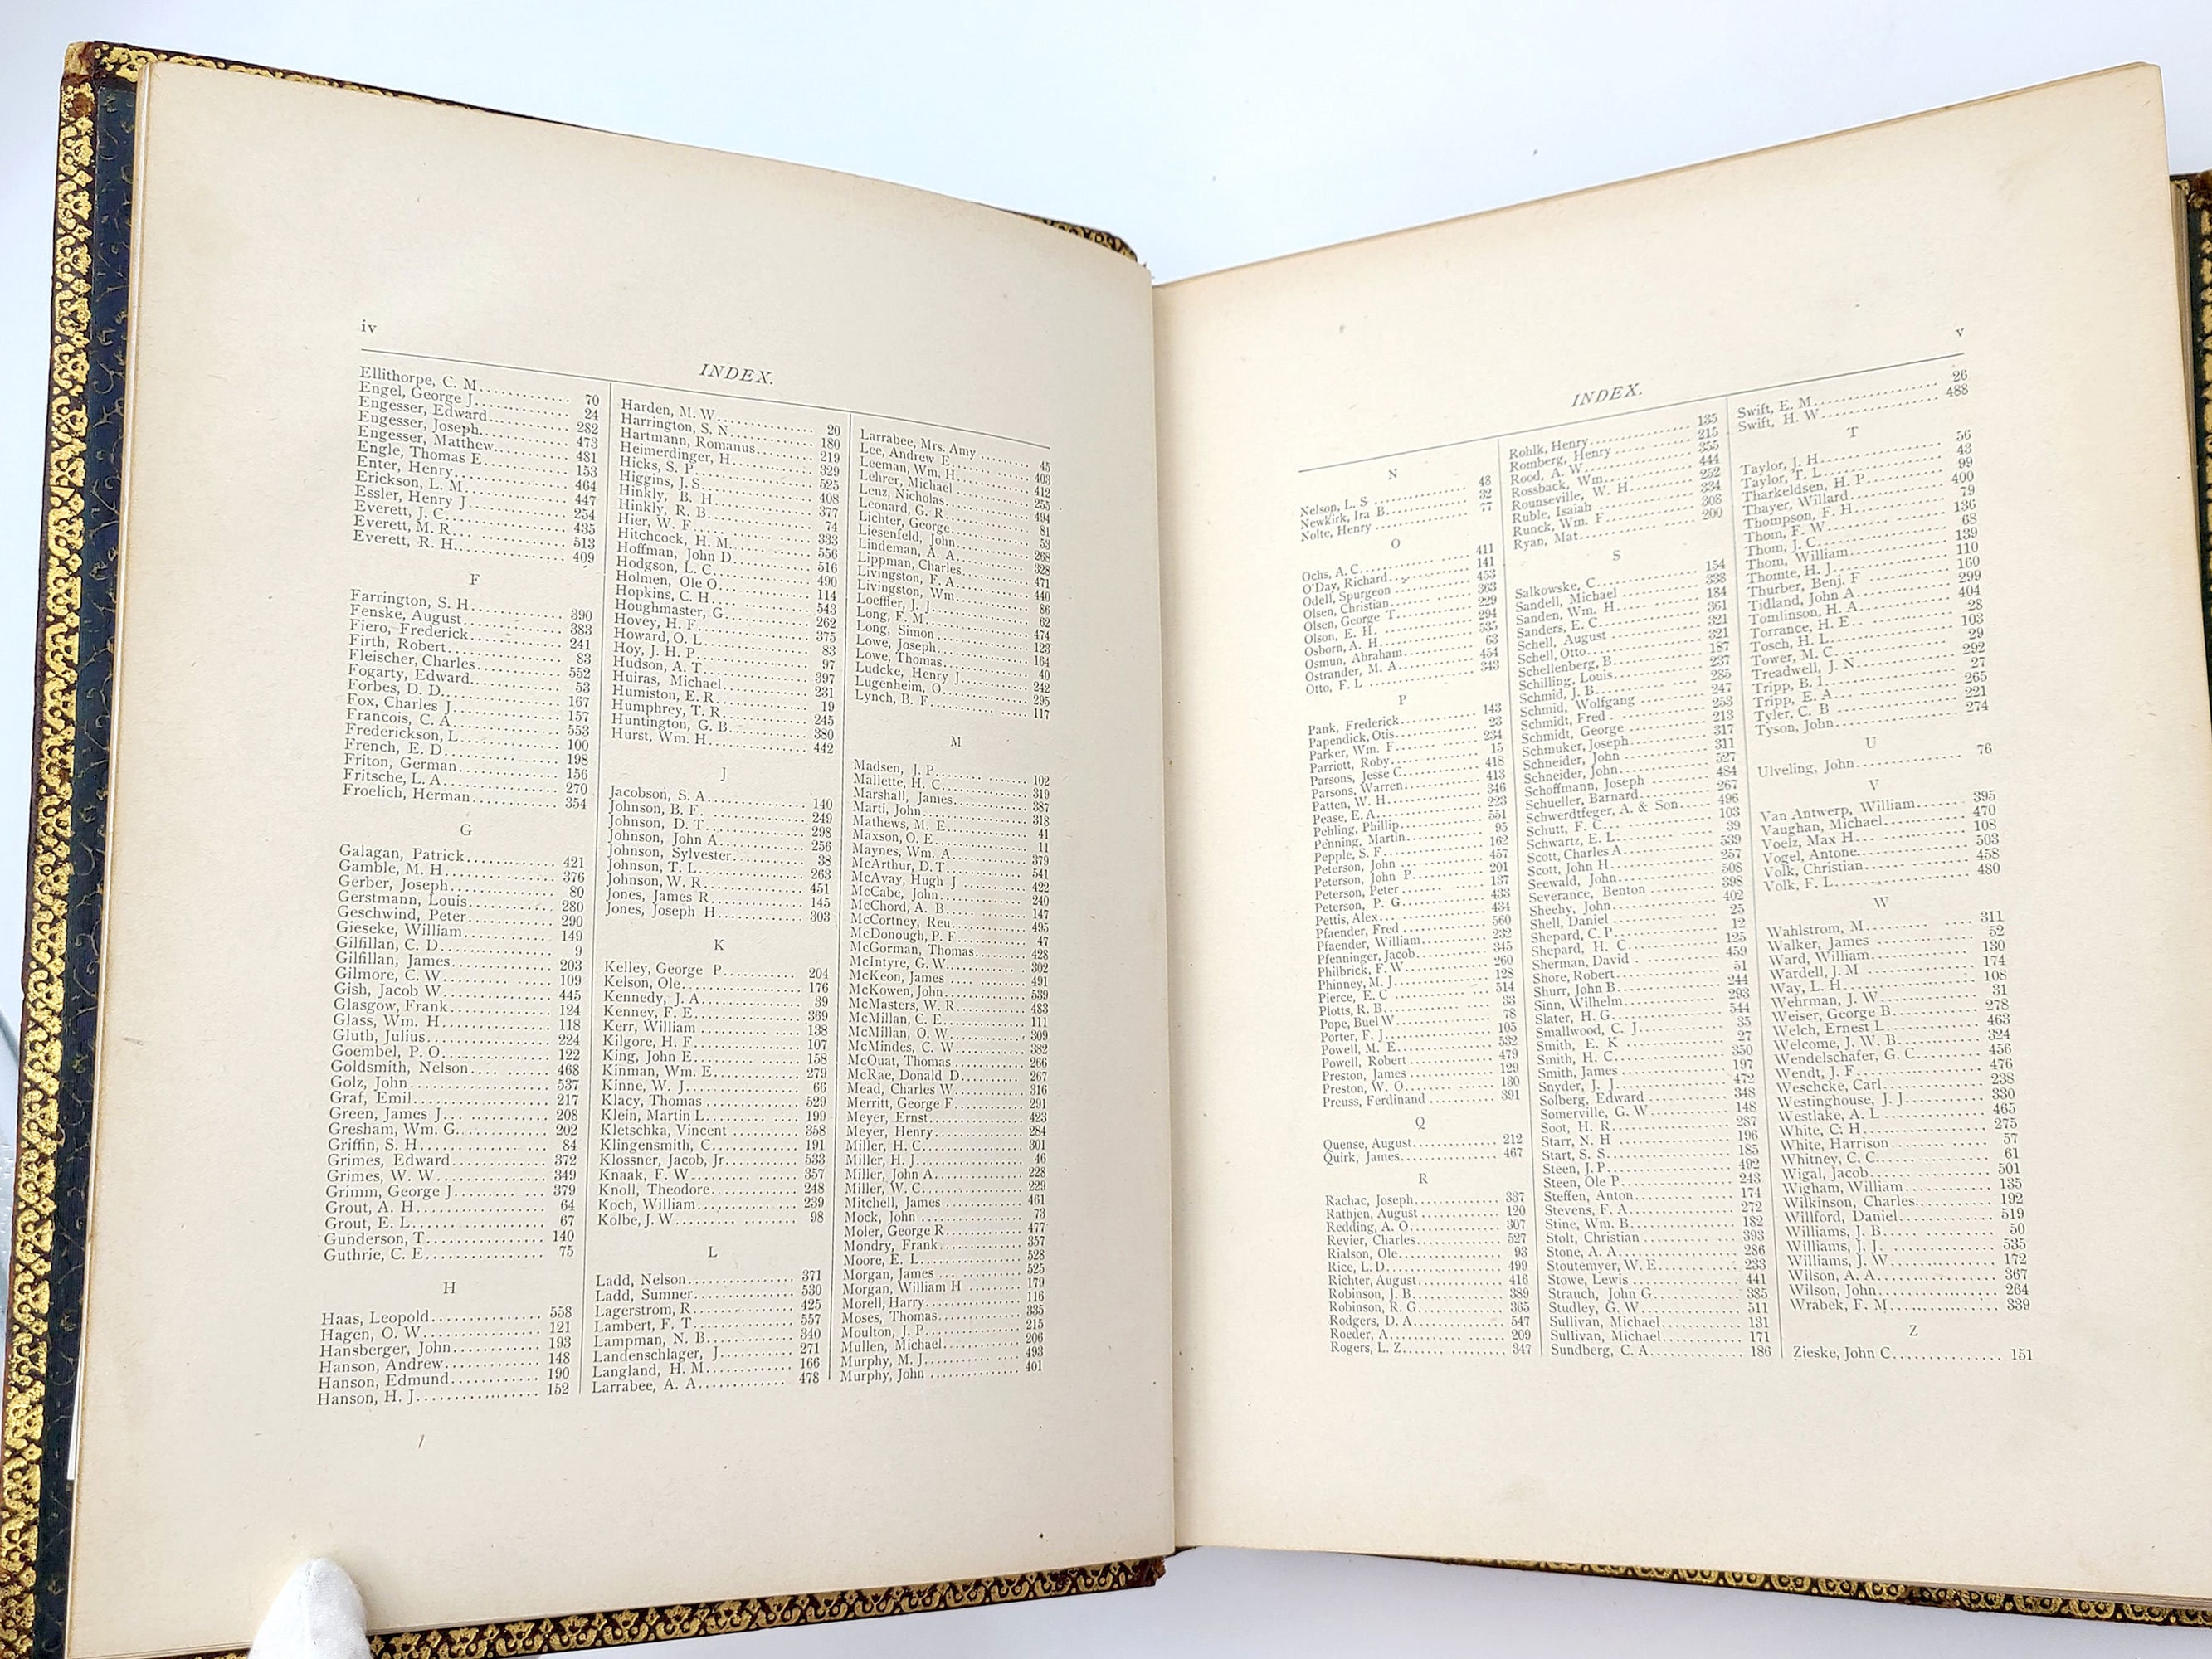 iv
INDEX.
Ellithorpe, C. M. 70
Engel, George J. 24
Engesser, Edward 282
Engesser, Joseph 473
Engesser, Matthew 481
Engle, Thomas E. 153
Enter, Henry 464
Erickson, L. M. 447
Essler, Henry J 254
Everett, J. C. 435
Everett, M. R. 513
Everett, R. H. 409
F
Farrington, S. H. 390
Fenske, August 383
Fiero, Frederick 241
Firth, Robert 83
Fleischer, Charles 552
Fogarty, Edward 53
Forbes, D. D. 167
Fox, Charles J. 157
Francois, C. A. 553
Frederickson, L. 100
French, E. D. 198
Friton, German 156
Fritsche, L. A. 270
Froelich, Herman 354
G
Galagan, Patrick 421
Gamble, M. H. 376
Gerber, Joseph 80
Gerstmann, Louis 280
Geschwind, Peter 290
Gieseke, William 149
Gilfillan, C. D. 9
Gilfillan, James 203
Gilmore, C. W. 109
Gish, Jacob W. 445
Glasgow, Frank 124
Glass, Wm. H. 118
Gluth, Julius 224
Goembel, P. O. 122
Goldsmith, Nelson 468
Golz, John 537
Graf, Emil 217
Green, James J. 208
Gresham, Wm. G. 202
Griffin, S. H. 84
Grimes, Edward 372
Grimes, W. W. 349
Grimm, George J. 379
Grout, A. H. 64
Grout, E. L. 67
Gunderson, T. 140
Guthrie, C. E. 75
H
Haas, Leopold 558
Hagen, O. W. 121
Hansberger, John 193
Hanson, Andrew 148
Hanson, Edmund 190
Hanson, H. J. 152
Harden, M. W. 20
Harrington, S. N. 180
Hartmann, Romanus 219
Heimerdinger, H. 329
Hicks, S. P. 525
Higgins, J. S. 408
Hinkly, B. H. 377
Hinkly, R. B. 74
Hier, W. F. 333
Hitchcock, H. M. 556
Hoffman, John D. 516
Hodgson, L. C. 490
Holmen, Ole O. 114
Hopkins, C. H. 543
Houghmaster, G. 262
Hovey, H. F. 375
Howard, O. L. 83
Hoy, J. H. P. 97
Hudson, A. T. 397
Huiras, Michael 231
Humiston, E. R. 19
Humphrey, T. R. 245
Huntington, G. B. 380
Hurst, Wm. H. 442
J
Jacobson, S. A. 140
Johnson, B. F. 249
Johnson, D. T. 298
Johnson, John A. 256
Johnson, Sylvester 38
Johnson, T. L. 263
Johnson, W. R. 451
Jones, James R. 145
Jones, Joseph H. 303
K
Kelley, George P. 204
Kelson, Ole 176
Kennedy, J. A. 39
Kenney, F. E. 369
Kerr, William 138
Kilgore, H. F. 107
King, John E. 158
Kinman, Wm. E. 279
Kinne, W. J. 66
Klacy, Thomas 529
Klein, Martin L. 199
Kletschka, Vincent 358
Klingensmith, C. 191
Klossner, Jacob, Jr. 533
Knaak, F. W. 357
Knoll, Theodore 248
Koch, William 239
Kolbe, J. W. 98
L
Ladd, Nelson 371
Ladd, Sumner 530
Lagerstrom, R. 425
Lambert, F. T. 557
Lampman, N. B. 340
Landenschlager, J. 271
Langland, H. M. 166
Larrabee, A. A. 478
Larrabee, Mrs. Amy 45
Lee, Andrew E. 403
Leeman, Wm. H. 412
Lehrer, Michael 255
Lenz, Nicholas 494
Leonard, G. R. 81
Lichter, George 53
Liesenfeld, John 268
Lindeman, A. A. 328
Lippman, Charles 471
Livingston, F. A. 440
Livingston, Wm. 86
Loeffler, J. J. 62
Long, F. M. 474
Long, Simon 123
Lowe, Joseph 164
Lowe, Thomas 40
Ludcke, Henry J. 242
Lugenheim, O. 295
Lynch, B. F. 117
M
Madsen, J. P. 102
Mallette, H. C. 319
Marshall, James 387
Marti, John 318
Mathews, M. E. 41
Maxson, O. E. 11
Maynes, Wm. A. 379
McArthur, D. T. 541
McAvay, Hugh J 422
McCabe, John 240
McChord, A. B. 147
McCortney, Reu 495
McDonough, P. F. 47
McGorman, Thomas 428
McIntyre, G. W. 302
McKeon, James 491
McKowen, John 539
McMasters, W. R. 483
McMillan, C. E. 111
McMillan, O. W. 309
McMindes, C. W. 382
McOuat, Thomas 266
McRae, Donald D. 267
Mead, Charles W. 316
Merritt, George F. 291
Meyer, Ernst 423
Meyer, Henry 284
Miller, H. C. 301
Miller, H. J. 46
Miller, John A. 228
Miller, W. C. 229
Mitchell, James 461
Mock, John 73
Moler, George R. 477
Mondry, Frank 357
Moore, E. L. 528
Morgan, James 525
Morgan, William H 179
Morell, Harry 116
Moses, Thomas 335
Moulton, J. P. 215
Mullen, Michael 206
Murphy, M. J. 493
Murphy, John 401
v
INDEX.
N
Nelson, L. S. 48
Newkirk, Ira B. 32
Nolte, Henry 77
O
Ochs, A. C. 411
O'Day, Richard 141
Odell, Spurgeon 453
Olsen, Christian 363
Olsen, George T. 229
Olson, E. H. 294
Osborn, A. H. 535
Osmun, Abraham 63
Ostrander, M. A. 454
Otto, F. L. 343
P
Pank, Frederick 143
Papendick, Otis 23
Parker, Wm. F. 234
Parriott, Roby 15
Parsons, Jesse C. 418
Parsons, Warren 413
Patten, W. H. 346
Pease, E. A. 223
Pehling, Phillip 551
Penning, Martin 95
Pepple, S. F. 162
Peterson, John 457
Peterson, John P. 201
Peterson, Peter 137
Peterson, P. G. 433
Pettis, Alex 434
Pfaender, Fred 560
Pfaender, William 232
Pfenninger, Jacob 345
Philbrick, F. W. 260
Phinney, M. J. 128
Pierce, E. C 514
Plotts, R. B. 33
Pope, Buel W. 78
Porter, F. J. 105
Powell, M. E. 532
Powell, Robert 479
Preston, James 129
Preston, W. O. 130
Preuss, Ferdinand 391
Q
Quense, August 212
Quirk, James 467
R
Rachac, Joseph 337
Rathjen, August 120
Redding, A. O. 307
Revier, Charles 527
Rialson, Ole 93
Rice, L. D. 499
Richter, August 416
Robinson, J. B. 389
Robinson, R. G. 365
Rodgers, D. A. 547
Roeder, A. 209
Rogers, L. Z. 347
Rohlk, Henry 135
Romberg, Henry 215
Rood, A. W. 355
Rossback, Wm. 444
Rounseville, W. H. 252
Ruble, Isaiah 334
Runck, Wm. F. 308
Ryan, Mat. 200
S
Salkowske, C. 154
Sandell, Michael 338
Sanden, Wm. H. 184
Sanders, E. C. 361
Schell, August 321
Schell, Otto 321
Schellenberg, B. 187
Schilling, Louis 237
Schmid, J. B. 285
Schmid, Wolfgang 247
Schmidt, Fred. 253
Schmidt, George 213
Schmuker, Joseph 317
Schneider, John 311
Schneider, John 527
Schoffmann, Joseph 484
Schueller, Barnard 267
Schwerdtfeger, A. & Son 496
Schutt, F. C. 103
Schwartz, E. L. 39
Scott, Charles A. 539
Scott, John H. 257
Seewald, John 508
Severance, Benton 398
Sheehy, John 402
Shell, Daniel 25
Shepard, C. P. 12
Shepard, H. C. 125
Sherman, David 459
Shore, Robert 51
Shurr, John B. 244
Sinn, Wilhelm 293
Slater, H. G. 544
Smallwood, C. J. 35
Smith, E. K 27
Smith, H. C. 350
Smith, James 197
Snyder, J. J. 472
Solberg, Edward 348
Somerville, G. W. 148
Soot, H. R. 287
Starr, N. H 196
Start, S. S. 185
Steen, J. P. 492
Steen, Ole P. 243
Steffen, Anton 174
Stevens, F. A. 272
Stine, Wm. B. 182
Stolt, Christian 393
Stone, A. A. 286
Stoutemyer, W. E. 233
Stowe, Lewis 441
Strauch, John G. 385
Studley, G. W. 511
Sullivan, Michael 131
Sullivan, Michael 171
Sundberg, C. A. 186
Swift, E. M. 26
Swift, H. W. 488
T
Taylor, J. H. 56
Taylor, T. L. 43
Tharkeldsen, H. P. 99
Thayer, Willard 400
Thompson, F. H. 79
Thom, F. W. 136
Thom, J. C. 68
Thom, William 139
Thomte, H. J. 110
Thurber, Benj. F 160
Tidland, John A. 299
Tomlinson, H. A. 404
Torrance, H. E. 28
Tosch, H. L. 103
Tower, M. C. 29
Treadwell, J. N. 292
Tripp, B. I. 27
Tripp, E. A. 265
Tyler, C. B 221
Tyson, John 274
U
Ulveling, John 76
V
Van Antwerp, William 395
Vaughan, Michael 470
Voelz, Max H. 108
Vogel, Antone 503
Volk, Christian 458
Volk, F. L. 480
W
Wahlstrom, M. 311
Walker, James 52
Ward, William 130
Wardell, J. M 174
Way, L. H. 108
Wehrman, J. W. 31
Weiser, George B. 278
Welch, Ernest L. 463
Welcome, J. W. B. 324
Wendelschafer, G. C. 456
Wendt, J. F. 476
Weschcke, Carl 238
Westinghouse, J. J. 330
Westlake, A. L. 465
White, C. H. 275
White, Harrison 57
Whitney, C. C. 61
Wigal, Jacob 501
Wigham, William 135
Wilkinson, Charles 192
Willford, Daniel 519
Williams, J. B. 50
Williams, J. J. 535
Williams, J. W. 172
Wilson, A. A. 367
Wilson, John 264
Wrabek, F. M. 339
Z
Zieske, John C. 151